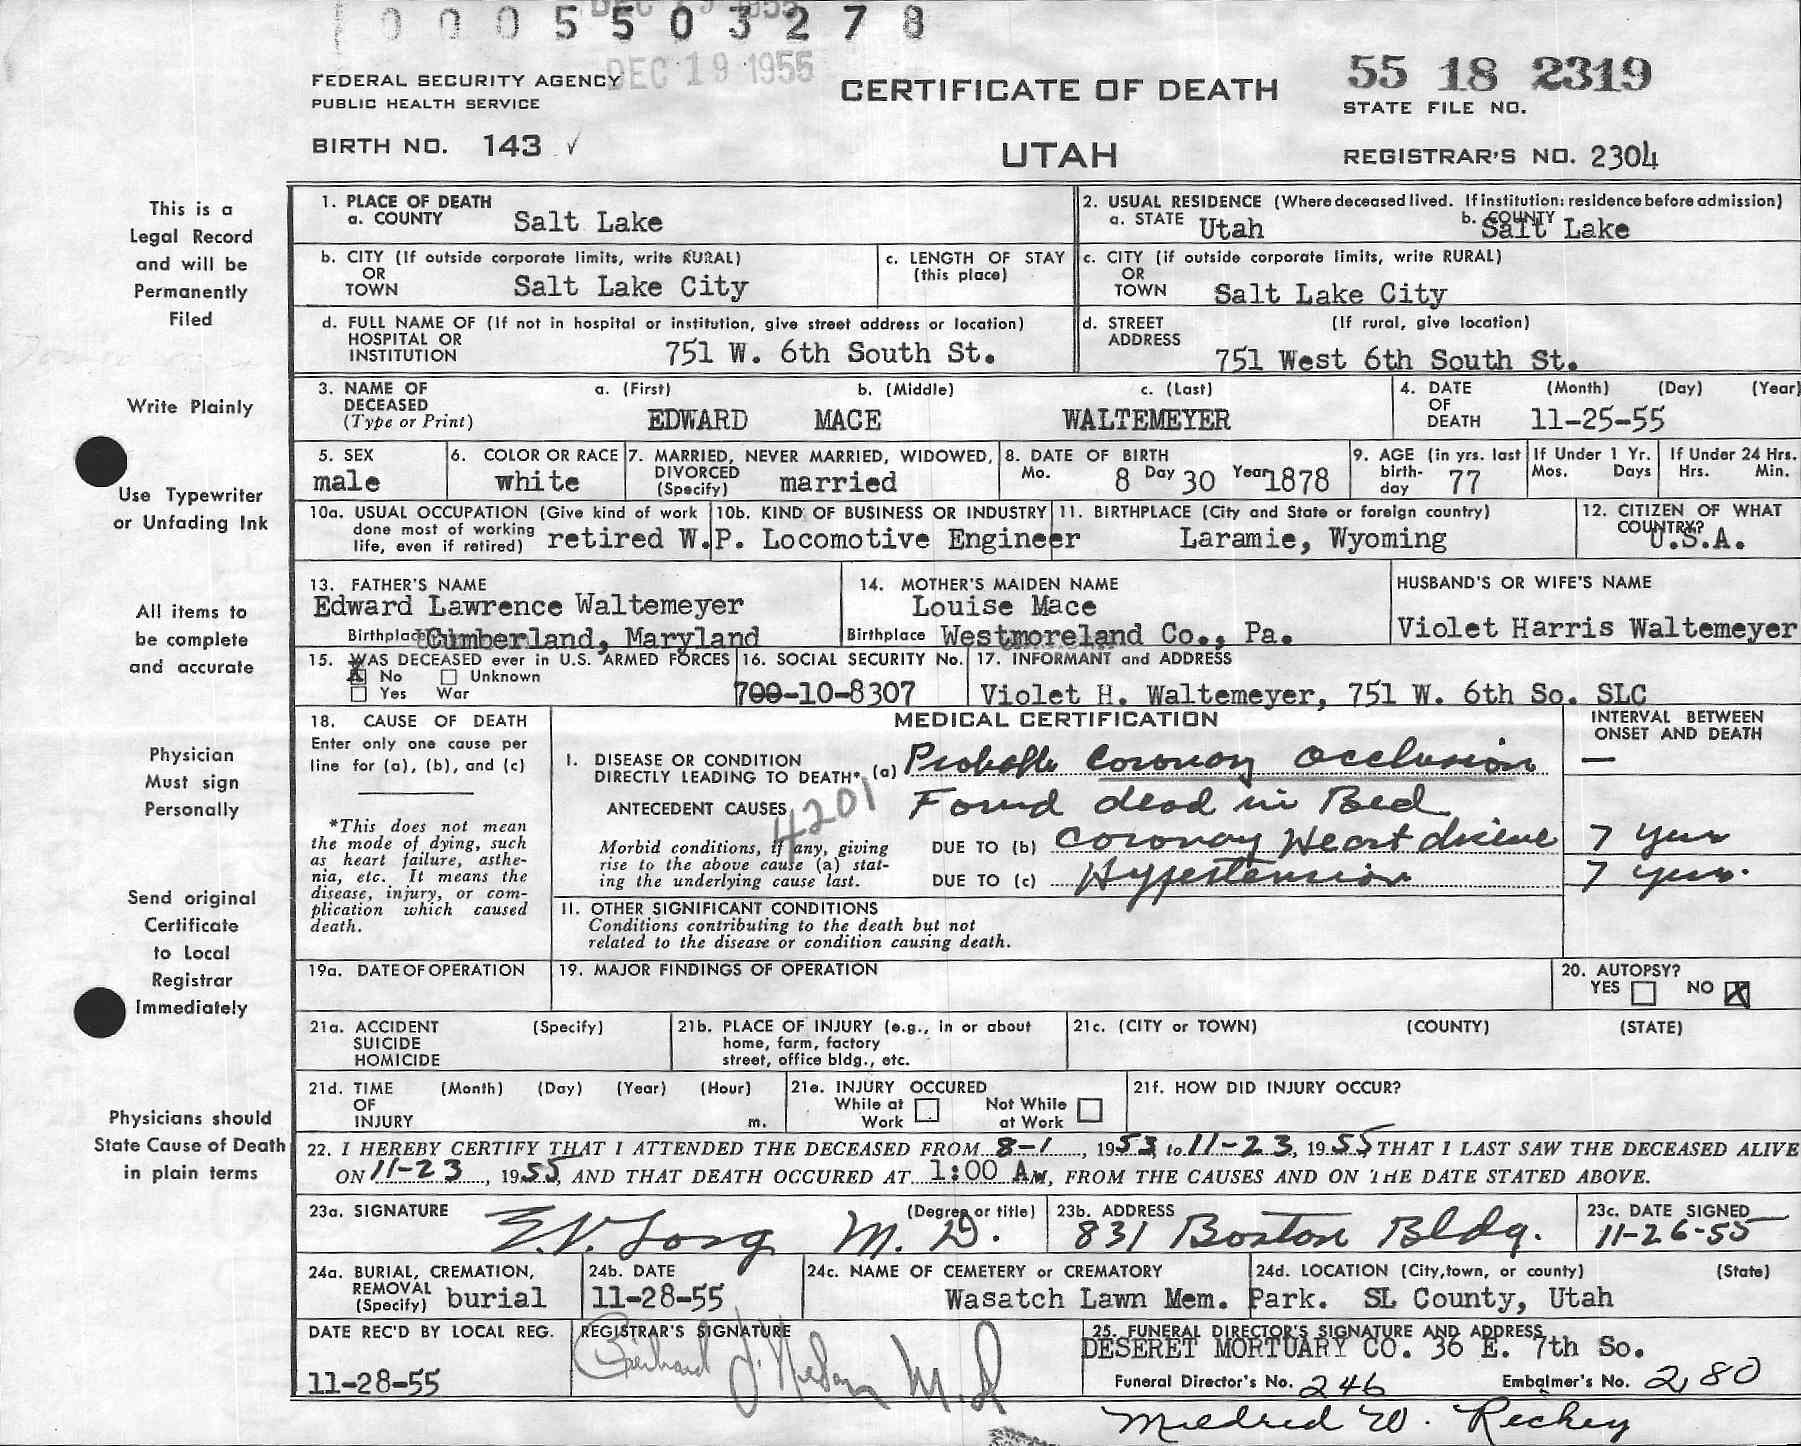 0005503278
DEC 19 1955
FEDERAL SECURITY AGENCY
PUBLIC HEALTH SERVICE
BIRTH NO. 143 ✓
CERTIFICATE OF DEATH
UTAH
55 18 2319
STATE FILE NO.
REGISTRAR'S NO. 2304
This is a
Legal Record
and will be
Permanently
Filed
Write Plainly
Use Typewriter
or Unfading Ink
All items to
be complete
and accurate
Physician
Must sign
Personally
Send original
Certificate
to Local
Registrar
Immediately
Physicians should
State Cause of Death
in plain terms
1. PLACE OF DEATH
a. COUNTY Salt Lake
2. USUAL RESIDENCE (Where deceased lived. If institution: residence before admission)
a. STATE Utah b. COUNTY Salt Lake
b. CITY (If outside corporate limits, write RURAL)
OR
TOWN Salt Lake City
c. LENGTH OF STAY
(this place)
c. CITY (if outside corporate limits, write RURAL)
OR
TOWN Salt Lake City
d. FULL NAME OF (If not in hospital or institution, give street address or location)
HOSPITAL OR
INSTITUTION 751 W. 6th South St.
d. STREET (If rural, give location)
ADDRESS
751 West 6th South St.
3. NAME OF a. (First) b. (Middle) c. (Last)
DECEASED
(Type or Print) EDWARD MACE WALTEMEYER
4. DATE (Month) (Day) (Year)
OF
DEATH 11-25-55
5. SEX
male
6. COLOR OR RACE
white
7. MARRIED, NEVER MARRIED, WIDOWED,
DIVORCED
(Specify) married
8. DATE OF BIRTH
Mo. 8 Day 30 Year 1878
9. AGE (in yrs. last
birth-
day 77
If Under 1 Yr.
Mos. Days
If Under 24 Hrs.
Hrs. Min.
10a. USUAL OCCUPATION (Give kind of work
done most of working
life, even if retired) retired W.P. Locomotive Engineer
10b. KIND OF BUSINESS OR INDUSTRY
11. BIRTHPLACE (City and State or foreign country)
Laramie, Wyoming
12. CITIZEN OF WHAT
COUNTRY?
U.S.A.
13. FATHER'S NAME
Edward Lawrence Waltemeyer
Birthplace Cumberland, Maryland
14. MOTHER'S MAIDEN NAME
Louise Mace
Birthplace Westmoreland Co., Pa.
HUSBAND'S OR WIFE'S NAME
Violet Harris Waltemeyer
15. WAS DECEASED ever in U.S. ARMED FORCES
X No Unknown
Yes War
16. SOCIAL SECURITY No.
700-10-8307
17. INFORMANT and ADDRESS
Violet H. Waltemeyer, 751 W. 6th So. SLC
18. CAUSE OF DEATH
Enter only one cause per
line for (a), (b), and (c)
*This does not mean
the mode of dying, such
as heart failure, asthe-
nia, etc. It means the
disease, injury, or com-
plication which caused
death.
MEDICAL CERTIFICATION
INTERVAL BETWEEN
ONSET AND DEATH
I. DISEASE OR CONDITION
DIRECTLY LEADING TO DEATH* (a) Probable Coronary Occlusion —
ANTECEDENT CAUSES 4201 Found dead in Bed
Morbid conditions, if any, giving
rise to the above cause (a) stat-
ing the underlying cause last.
DUE TO (b) Coronary Heart disease 7 years
DUE TO (c) Hypertension 7 years.
II. OTHER SIGNIFICANT CONDITIONS
Conditions contributing to the death but not
related to the disease or condition causing death.
19a. DATE OF OPERATION
19. MAJOR FINDINGS OF OPERATION
20. AUTOPSY?
YES NO X
21a. ACCIDENT (Specify)
SUICIDE
HOMICIDE
21b. PLACE OF INJURY (e.g., in or about
home, farm, factory
street, office bldg., etc.
21c. (CITY or TOWN) (COUNTY) (STATE)
21d. TIME (Month) (Day) (Year) (Hour)
OF
INJURY m.
21e. INJURY OCCURED
While at Not While
Work at Work
21f. HOW DID INJURY OCCUR?
22. I HEREBY CERTIFY THAT I ATTENDED THE DECEASED FROM 8-1, 1953 to 11-23, 1955 THAT I LAST SAW THE DECEASED ALIVE
ON 11-23, 1955, AND THAT DEATH OCCURED AT 1:00 Am, FROM THE CAUSES AND ON THE DATE STATED ABOVE.
23a. SIGNATURE (Degree or title)
E.V. Long M.D.
23b. ADDRESS
831 Boston Bldg.
23c. DATE SIGNED
11-26-55
24a. BURIAL, CREMATION,
REMOVAL
(Specify) burial
24b. DATE
11-28-55
24c. NAME OF CEMETERY or CREMATORY
Wasatch Lawn Mem. Park.
24d. LOCATION (City, town, or county) (State)
SL County, Utah
DATE REC'D BY LOCAL REG.
11-28-55
REGISTRAR'S SIGNATURE
M.D
25. FUNERAL DIRECTOR'S SIGNATURE AND ADDRESS
DESERET MORTUARY CO. 36 E. 7th So.
Funeral Director's No. 246 Embalmer's No. 280
Mildred W. Rechey